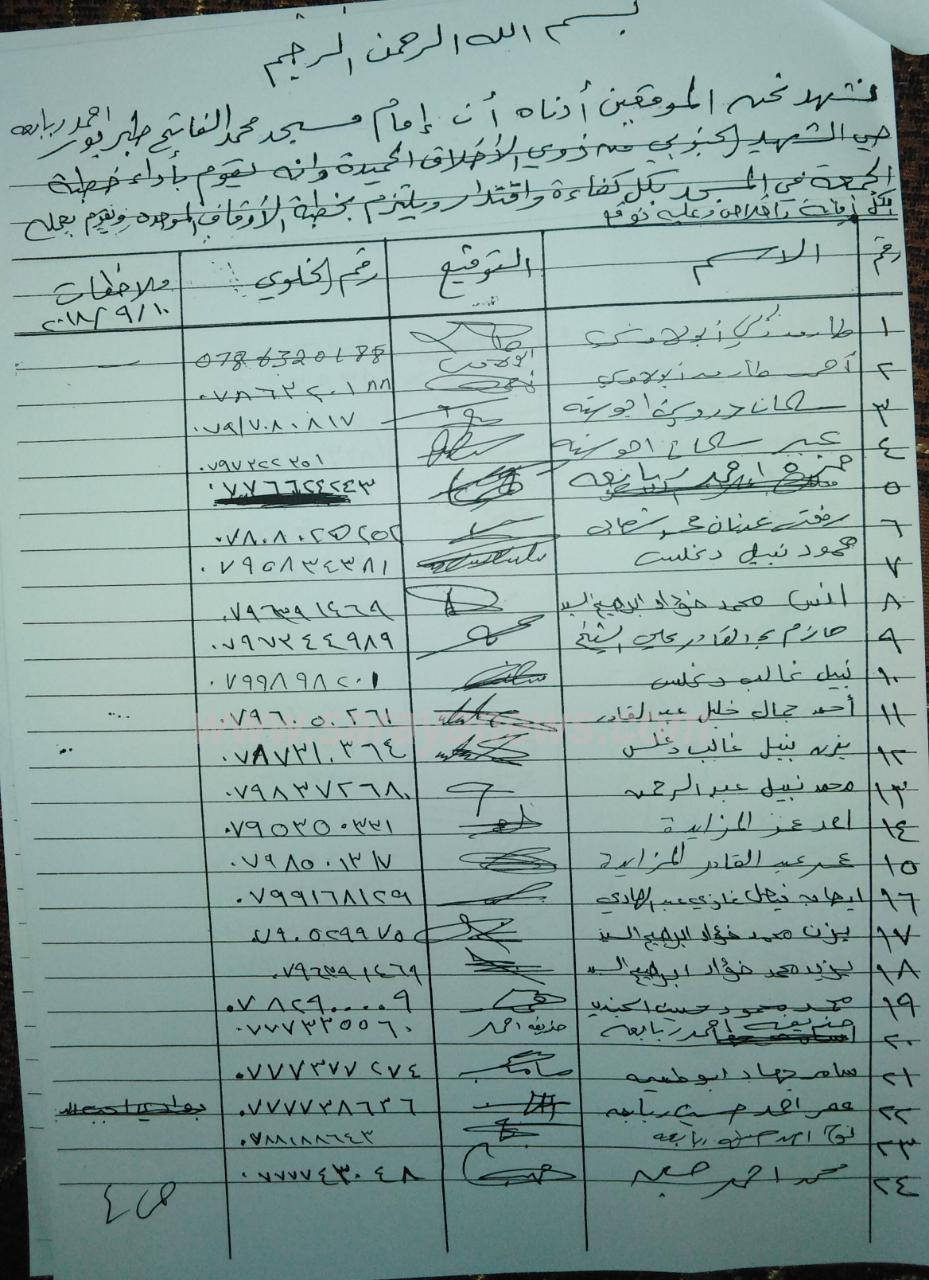 بسم الله الرحمن الرحيم
نشهد نحن الموقعين أدناه أن إمام مسجد محمد الفاتح طبربور احمد ربابعه
حي الشهيد الجنوبي من ذوي الأخلاق الحميدة وانه يقوم بأداء خطبة
الجمعة في المسجد بكل كفاءة واقتدار ويلتزم بخطبة الأوقاف الموحده ويقوم بعمله
بكل أمانة وأخلاص وعليه نوقع
رقم الاسم التوقيع رقم الخلوي ملاحظات
٢٠١٨/٩/١٠
١ 0786320188
٢ ٠٧٨٦٣٢٠١٨٨
٣ ٠٧٩/٧٠٨٠٨١٧
٤ ٠٧٩٧٢٢٢٣٥١
٥ حمزة احمد ربابعه ٠٧٧٦٦٢٤٢٤٣
٦ عدنان محمد
٧ محمود نبيل دغلس ٠٧٩٥٨٣٤٣٨١
٨ انس محمد فؤاد ابراهيم السيد ٠٧٩٦٣٩١٤٦٩
٩ حازم عبد القادر علي الشيخ ٠٧٩٧٣٤٤٩٨٩
١٠ نبيل غالب دغلس ٠٧٩٩٨٩٨٢٠١
١١ أحمد جمال خليل عبد القادر ٠٧٩٦٠٥٠٢٦١
www.sarayanews.com
١٢ يزن نبيل غالب دغلس ٠٧٨٧٣١٠٣٦٤
١٣ محمد نبيل عبد الرحمن ٠٧٩٨٣٧٢٦٨٠
١٤ المزايدة ٠٧٩٥٣٥٠٣٣١
١٥ عمر عبد القادر المزايدة ٠٧٩٨٥٠١٣١٧
١٦ ايهاب فيصل غازي عبد الهادي ٠٧٩٩١٦٨١٢٩
١٧ يزن محمد فؤاد ابراهيم السيد ٠٧٩٠٥٢٩٩٧٥
١٨ يزيد محمد فؤاد ابراهيم السيد ٠٧٩٦٣٩١٤٦٩
١٩ محمد محمود حسن ٠٧٨٢٩٠٠٠٠٩
٢٠ حذيفه احمد ربابعه حذيفه احمد ٠٧٧٧٣٣٥٥٦٠
٢١ سامر جهاد ٠٧٧٧٣٧٧٢٧٤
٢٢ عمر احمد حسين ربابعه ٠٧٧٧٧٣٨٦٣٦
٢٣ احمد ربابعه ٠٧٨٨١٨٨٦٤٣
٢٤ محمد احمد ٠٧٧٧٧٤٣٠٤٨